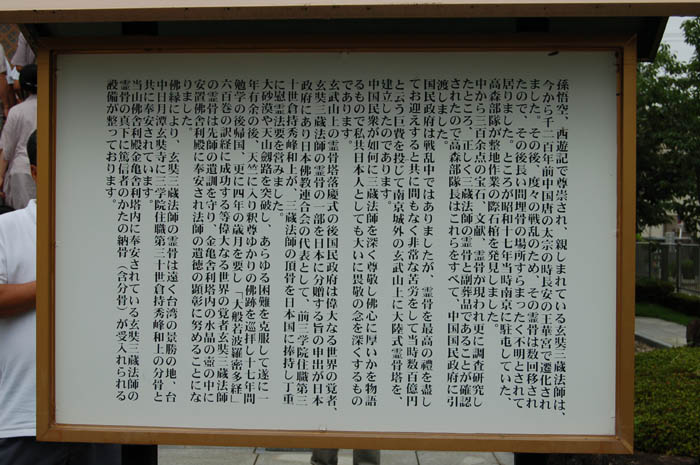 孫悟空、西遊記で尊崇され、親しまれている玄奘三蔵法師は、
今から千三百年前中国唐の太宗の時長安の玉華宮で遷化され
ました。その後、度々の戦乱のため、その霊骨は数回移され
たので、その後長い間埋骨の場所すらまったく不明とされて
居りました。ところが昭和十七年当時南京に駐屯していた、
高森部隊が整地作業の際石棺を発見しました。
中から三百余点の宝石、文献、霊骨が現われ更に調査研究し
たところ、正しく三蔵法師の霊骨と副葬品であることが確認
されたので高森部隊長はこれらをすべて、中国国民政府に引
渡しました。
国民政府は戦乱中ではありましたが、霊骨を最高の禮を盡し
てお迎えすると共に間もなく非常な苦労をして当時数百億円
と云う巨費を投じて南京城外の玄武山上に大陸式霊骨塔を、
建立したのであります。
中国民衆が如何に三蔵法師を深く尊敬し佛心に厚いかを物語
るもので私共日本人としても大いに畏敬の念を深くするもの
であります。
玄武山上の霊骨塔落慶式の後国民政府は偉大なる世界の覚者、
玄奘三蔵法師の霊骨の一部を日本に分贈する旨の申出が日本
政府にあり日本佛教連合会の代表として、前三学院住職第三
十世倉持秀峰和上が、三蔵法師の頂骨を日本国に捧持し丁重
に慰霊法要を営みました。
大砂漠や大山剱路を突破し、あらゆる困難を克服して遂に一
年有余の後、天竺に入り釈尊ゆかりの佛跡を巡拝し十七年間
勉学の後帰国、更に四十年の歳月を要し「大般若波羅密多経」
六百巻の訳経に成功する等偉大なる世界の覚者玄奘三蔵法師
の霊骨は先師の遺訓を守り、金亀舎利塔内の水晶の壺の中に
安置佛舎利殿に奉安され法師の遺徳の顕彰に努めることにな
りました。
佛縁により、玄奘三蔵法師の霊骨は遠く台湾の景勝の地、台
中日月潭玄奘寺に三学院住職第三十世倉持秀峰和上の分骨と
共に奉安されています。
当山佛舎利殿金亀舎利塔内に奉安されている玄奘三蔵法師の
霊骨の真下に篤信者のかたの納骨（含分骨）が受入れられる
設備が整っております。